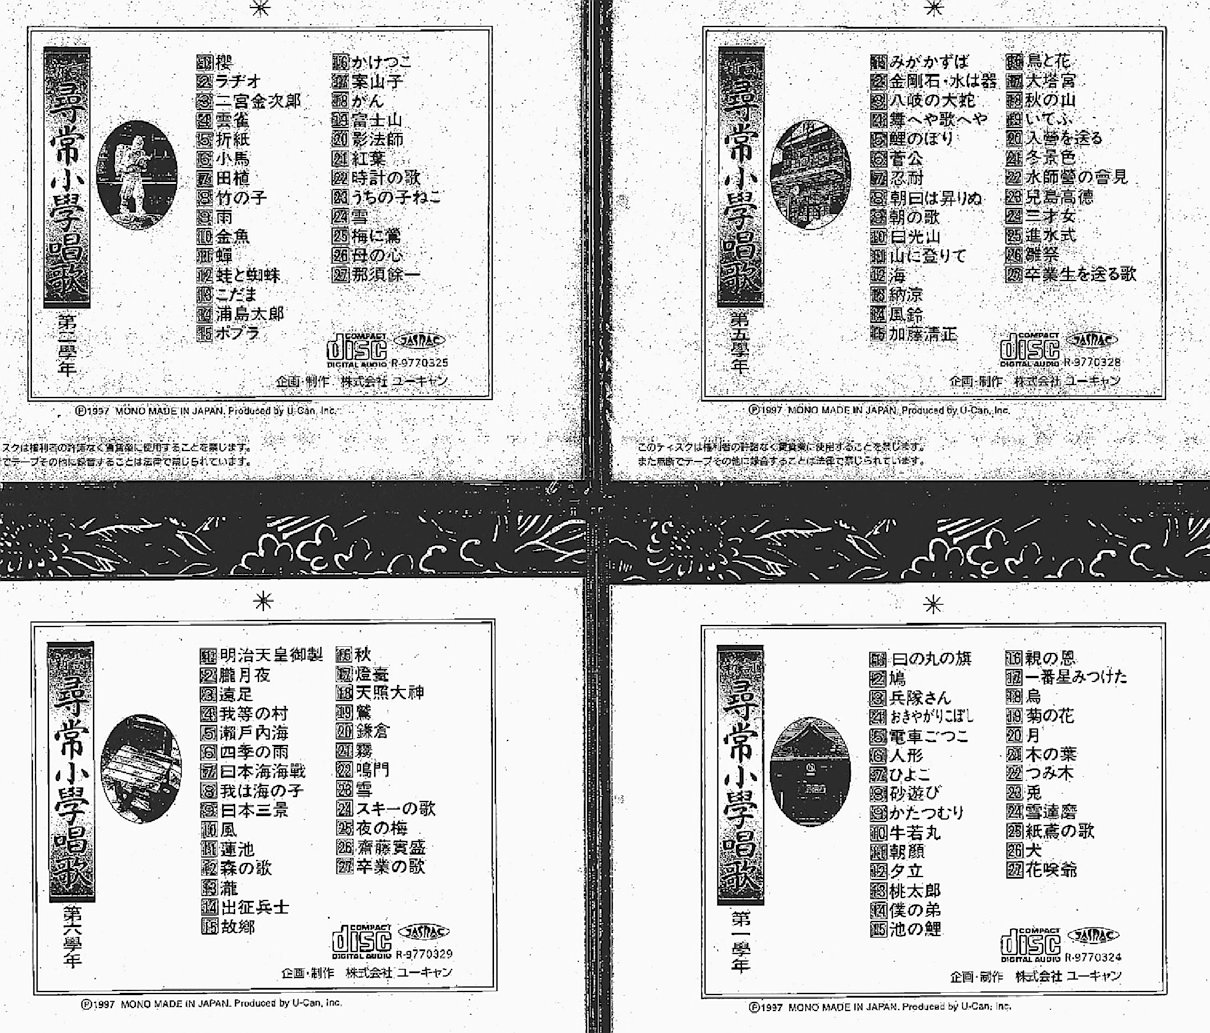 尋常小學唱歌
第二學年
1 櫻
2 ラヂオ
3 二宮金次郎
4 雲雀
5 折紙
6 小馬
7 田植
8 竹の子
9 雨
10 金魚
11 蟬
12 蛙と蜘蛛
13 こだま
14 浦島太郎
15 ポプラ
16 かけつこ
17 案山子
18 がん
19 富士山
20 影法師
21 紅葉
22 時計の歌
23 うちの子ねこ
24 雪
25 梅に鶯
26 母の心
27 那須餘一
COMPACT disc DIGITAL AUDIO JASRAC R-9770325
企画・制作 株式会社 ユーキャン
Ⓟ1997 MONO MADE IN JAPAN. Produced by U-Can, Inc.
スクは権利者の許諾なく賃貸業に使用することを禁じます。
でテープその他に録音することは法律で禁じられています。
尋常小學唱歌
第五學年
1 みがかずば
2 金剛石・水は器
3 八岐の大蛇
4 舞へや歌へや
5 鯉のぼり
6 菅公
7 忍耐
8 朝日は昇りぬ
9 朝の歌
10 日光山
11 山に登りて
12 海
13 納涼
14 風鈴
15 加藤清正
16 鳥と花
17 大塔宮
18 秋の山
19 いてふ
20 入營を送る
21 冬景色
22 水師營の會見
23 兒島高德
24 三才女
25 進水式
26 雛祭
27 卒業生を送る歌
COMPACT disc DIGITAL AUDIO JASRAC R-9770328
企画・制作 株式会社 ユーキャン
Ⓟ1997 MONO MADE IN JAPAN. Produced by U-Can, Inc.
このディスクは権利者の許諾なく賃貸業に使用することを禁じます。
また無断でテープその他に録音することは法律で禁じられています。
尋常小學唱歌
第六學年
1 明治天皇御製
2 朧月夜
3 遠足
4 我等の村
5 瀨戶內海
6 四季の雨
7 日本海海戰
8 我は海の子
9 日本三景
10 風
11 蓮池
12 森の歌
13 瀧
14 出征兵士
15 故鄕
16 秋
17 燈臺
18 天照大神
19 鷲
20 鎌倉
21 霧
22 鳴門
23 雪
24 スキーの歌
25 夜の梅
26 齋藤實盛
27 卒業の歌
COMPACT disc DIGITAL AUDIO JASRAC R-9770329
企画・制作 株式会社 ユーキャン
Ⓟ1997 MONO MADE IN JAPAN. Produced by U-Can, Inc.
尋常小學唱歌
第一學年
1 日の丸の旗
2 鳩
3 兵隊さん
4 おきやがりこぼし
5 電車ごつこ
6 人形
7 ひよこ
8 砂遊び
9 かたつむり
10 牛若丸
11 朝顏
12 夕立
13 桃太郎
14 僕の弟
15 池の鯉
16 親の恩
17 一番星みつけた
18 烏
19 菊の花
20 月
21 木の葉
22 つみ木
23 兎
24 雪達磨
25 紙鳶の歌
26 犬
27 花咲爺
COMPACT disc DIGITAL AUDIO JASRAC R-9770324
企画・制作 株式会社 ユーキャン
Ⓟ1997 MONO MADE IN JAPAN. Produced by U-Can, Inc.